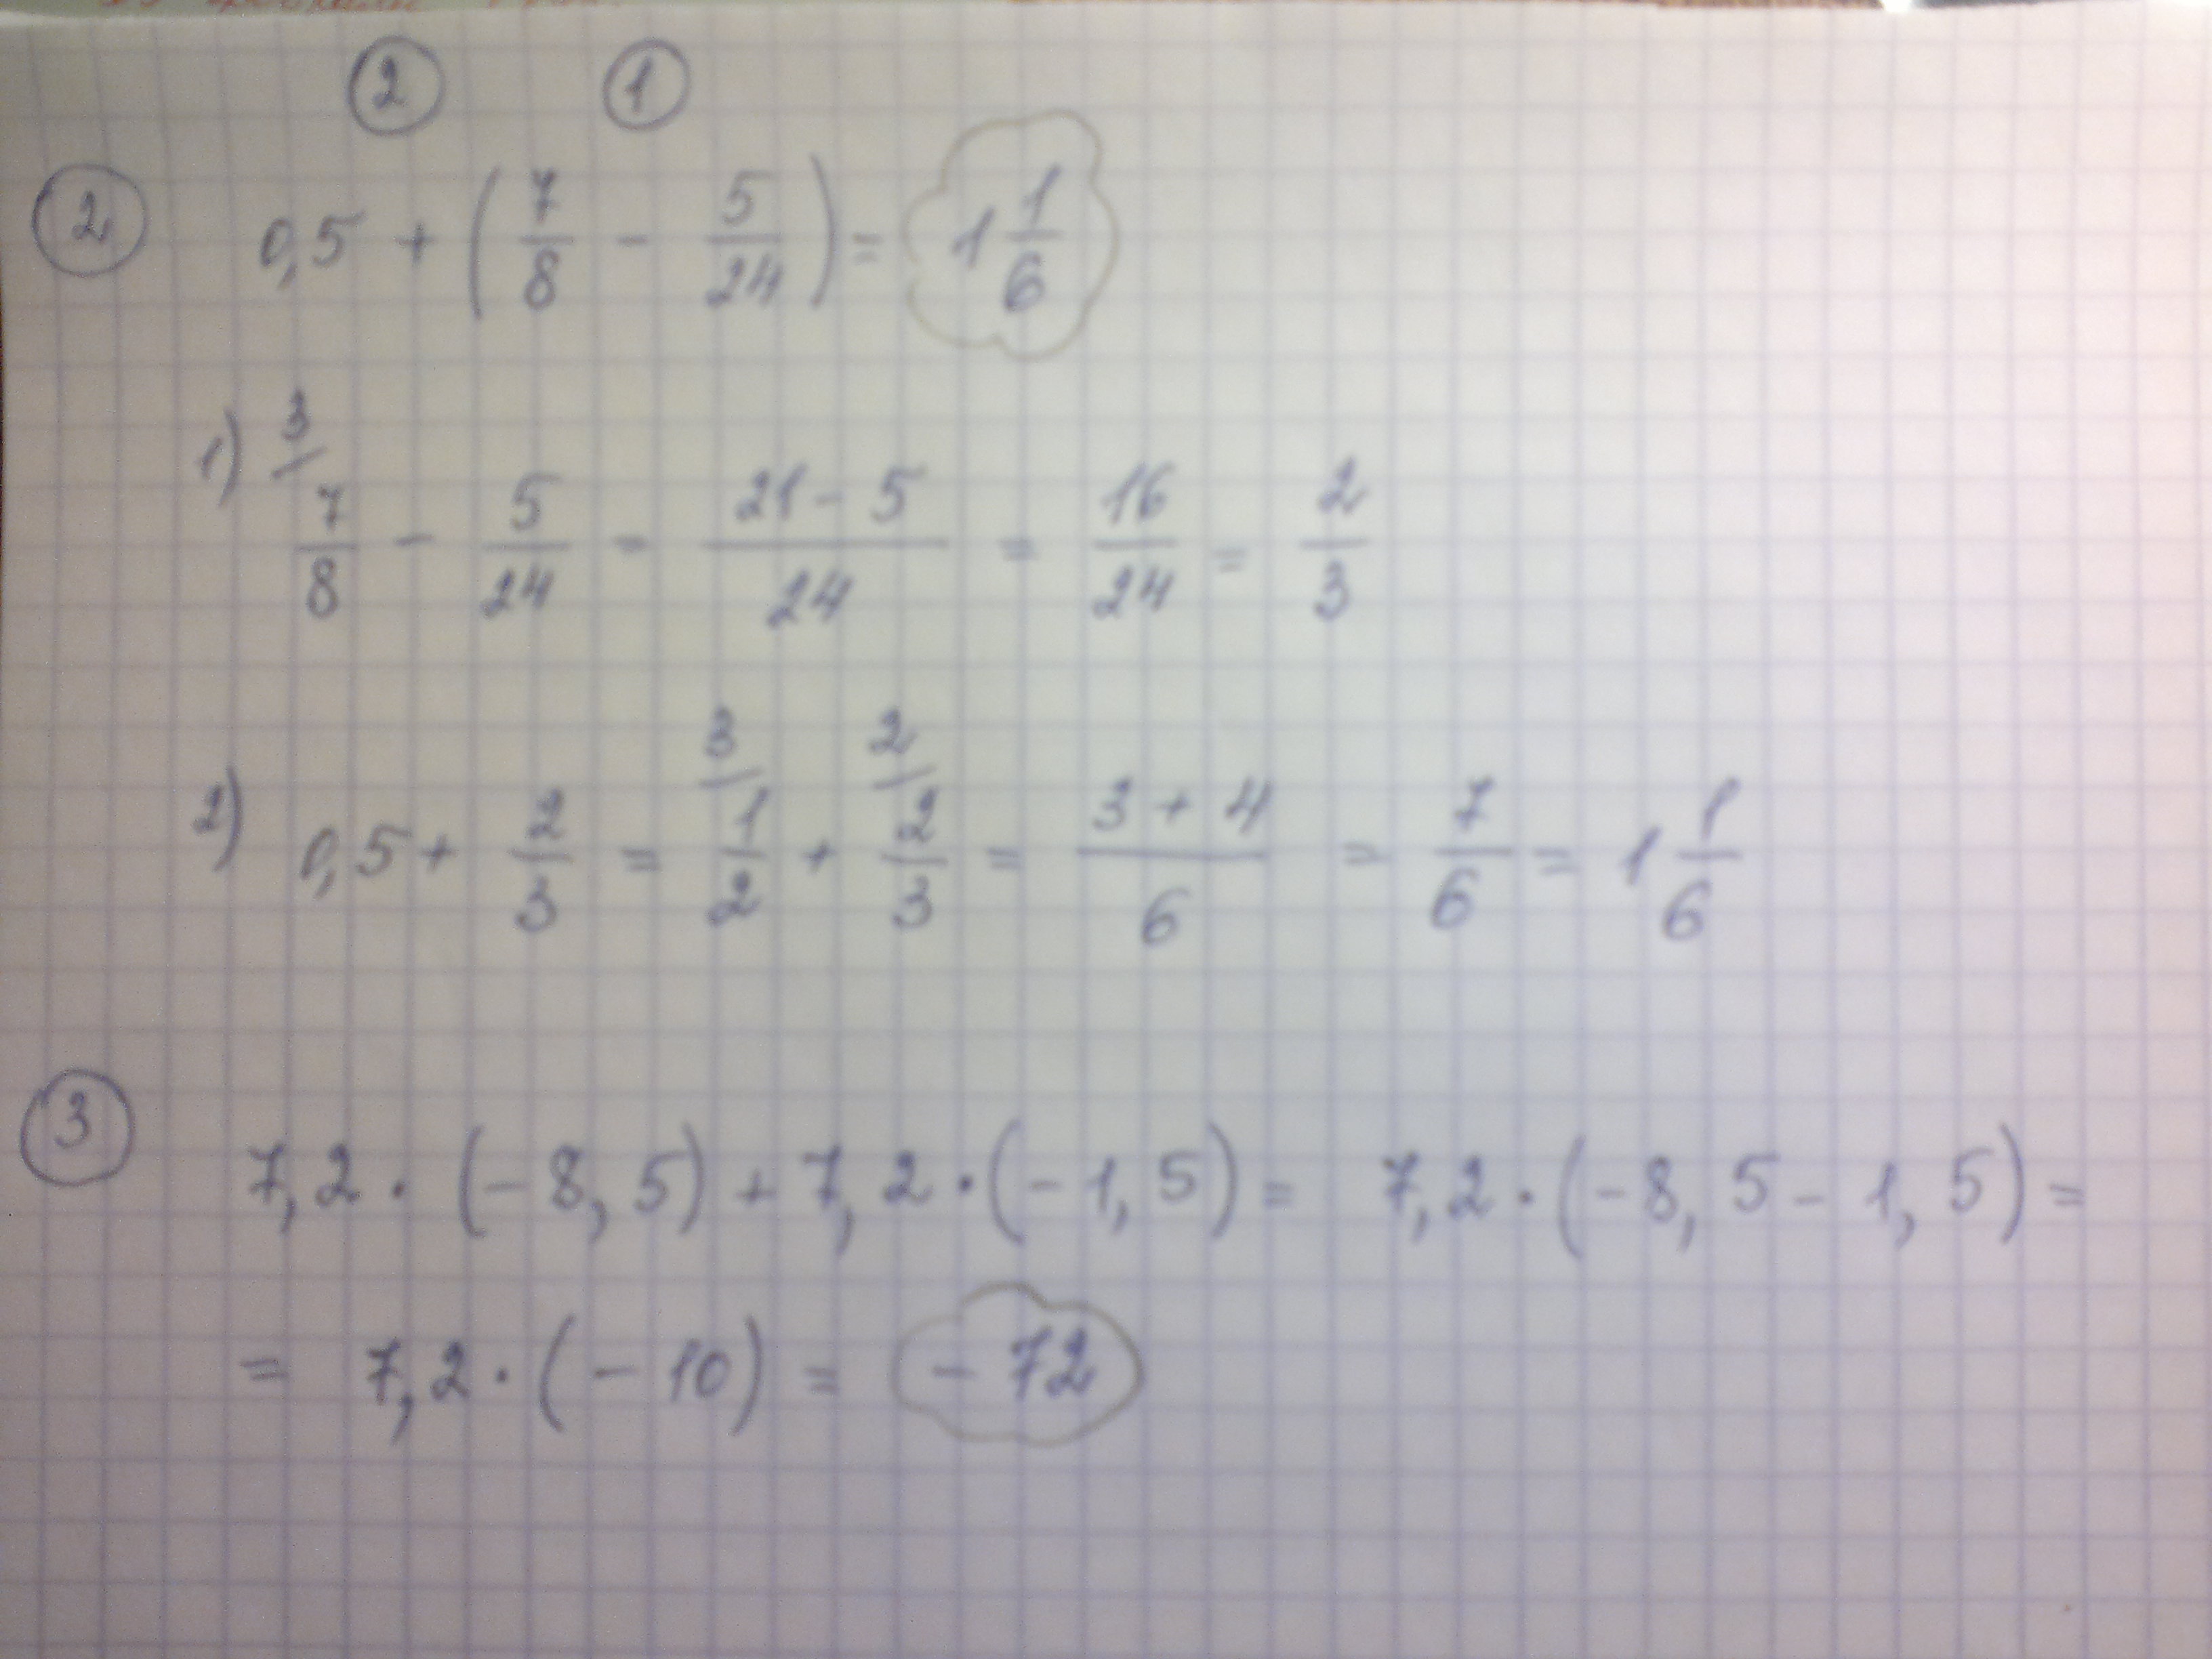 ② ①
② 0,5 + (7/8 - 5/24) = 1 1/6
1) 3/ 7/8 - 5/24 = (21 - 5)/24 = 16/24 = 2/3
2) 0,5 + 2/3 = 3/ 1/2 + 2/ 2/3 = (3 + 4)/6 = 7/6 = 1 1/6
③ 7,2 · (-8,5) + 7,2 · (-1,5) = 7,2 · (-8,5 - 1,5) =
= 7,2 · (-10) = -72